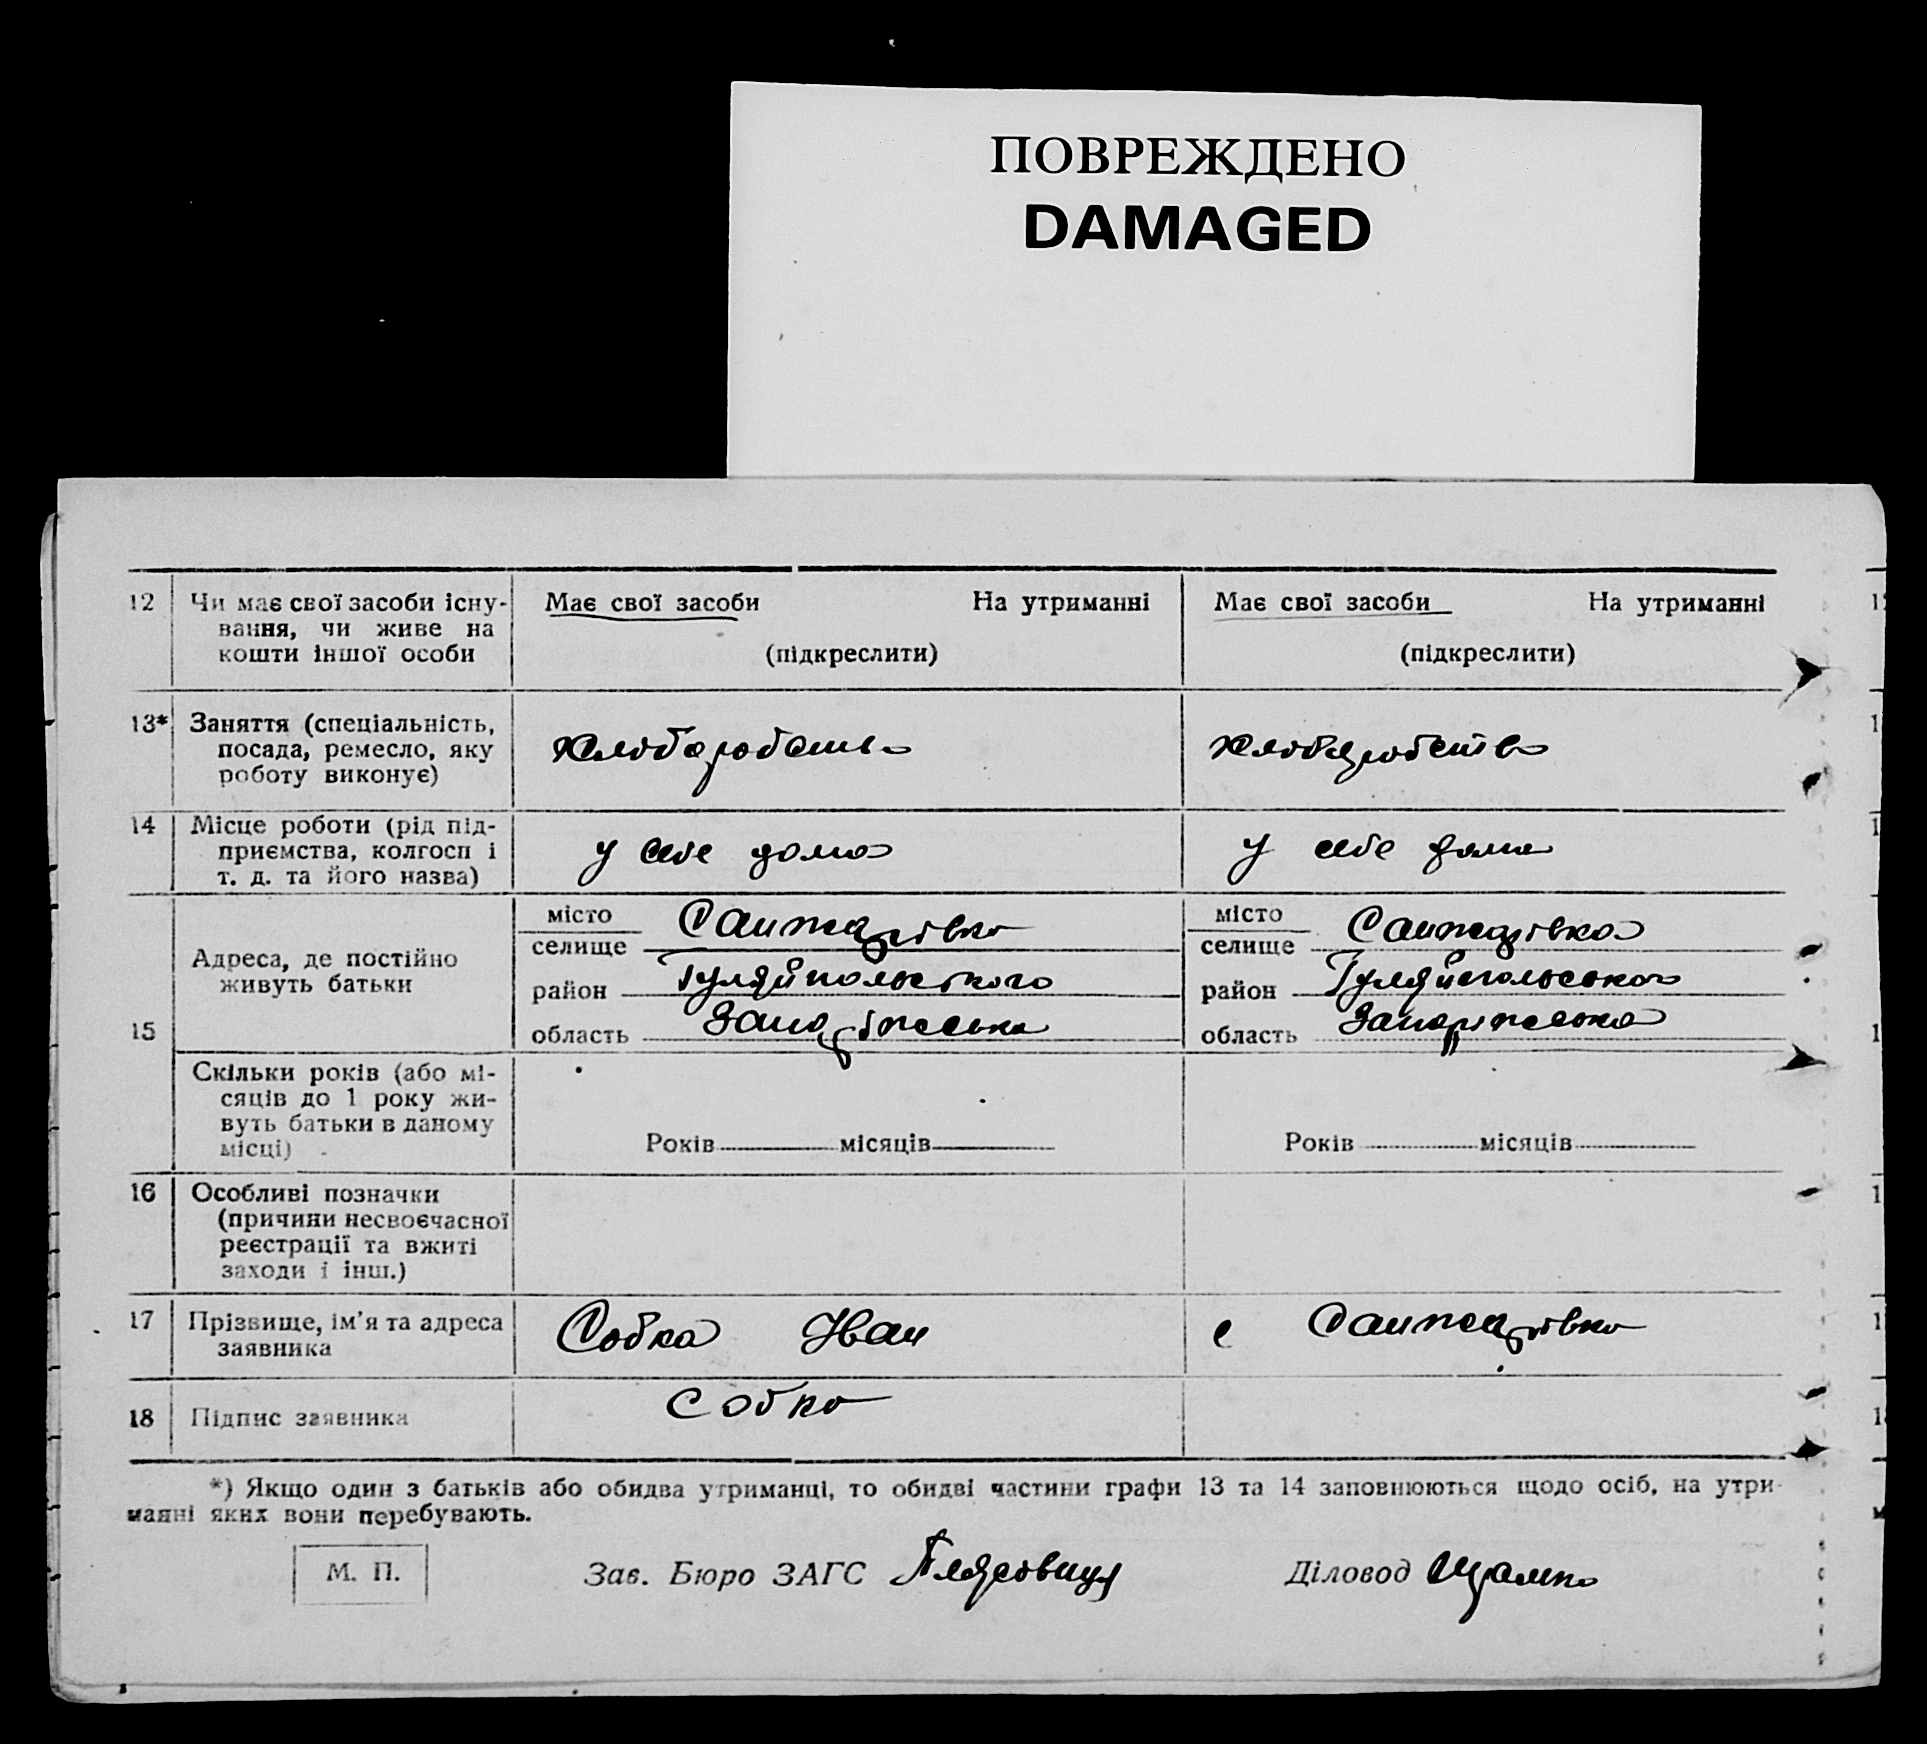 ПОВРЕЖДЕНО
DAMAGED
12 Чи має свої засоби існу- Має свої засоби На утриманні Має свої засоби На утриманні
вання, чи живе на
кошти іншої особи (підкреслити) (підкреслити)
13* Заняття (спеціальність,
посада, ремесло, яку
роботу виконує)
хлібаробство хлібаробство
14 Місце роботи (рід під-
приємства, колгосп і
т. д. та його назва)
у себе дома у себе дома
15 Адреса, де постійно
живуть батьки
місто Санжарівка місто Санжарівка
селище селище
район Гуляйпольського район Гуляйпольського
область Запоріжська область Запоріжська
Скільки років (або мі-
сяців до 1 року жи-
вуть батьки в даному
місці)
Років місяців Років місяців
16 Особливі позначки
(причини несвоєчасної
реєстрації та вжиті
заходи і інш.)
17 Прізвище, ім'я та адреса
заявника
Собка Іван с Санжарівка
18 Підпис заявника Собко
*) Якщо один з батьків або обидва утриманці, то обидві частини графи 13 та 14 заповнюються щодо осіб, на утри-
маяні яких вони перебувають.
М. П. Зав. Бюро ЗАГС Діловод